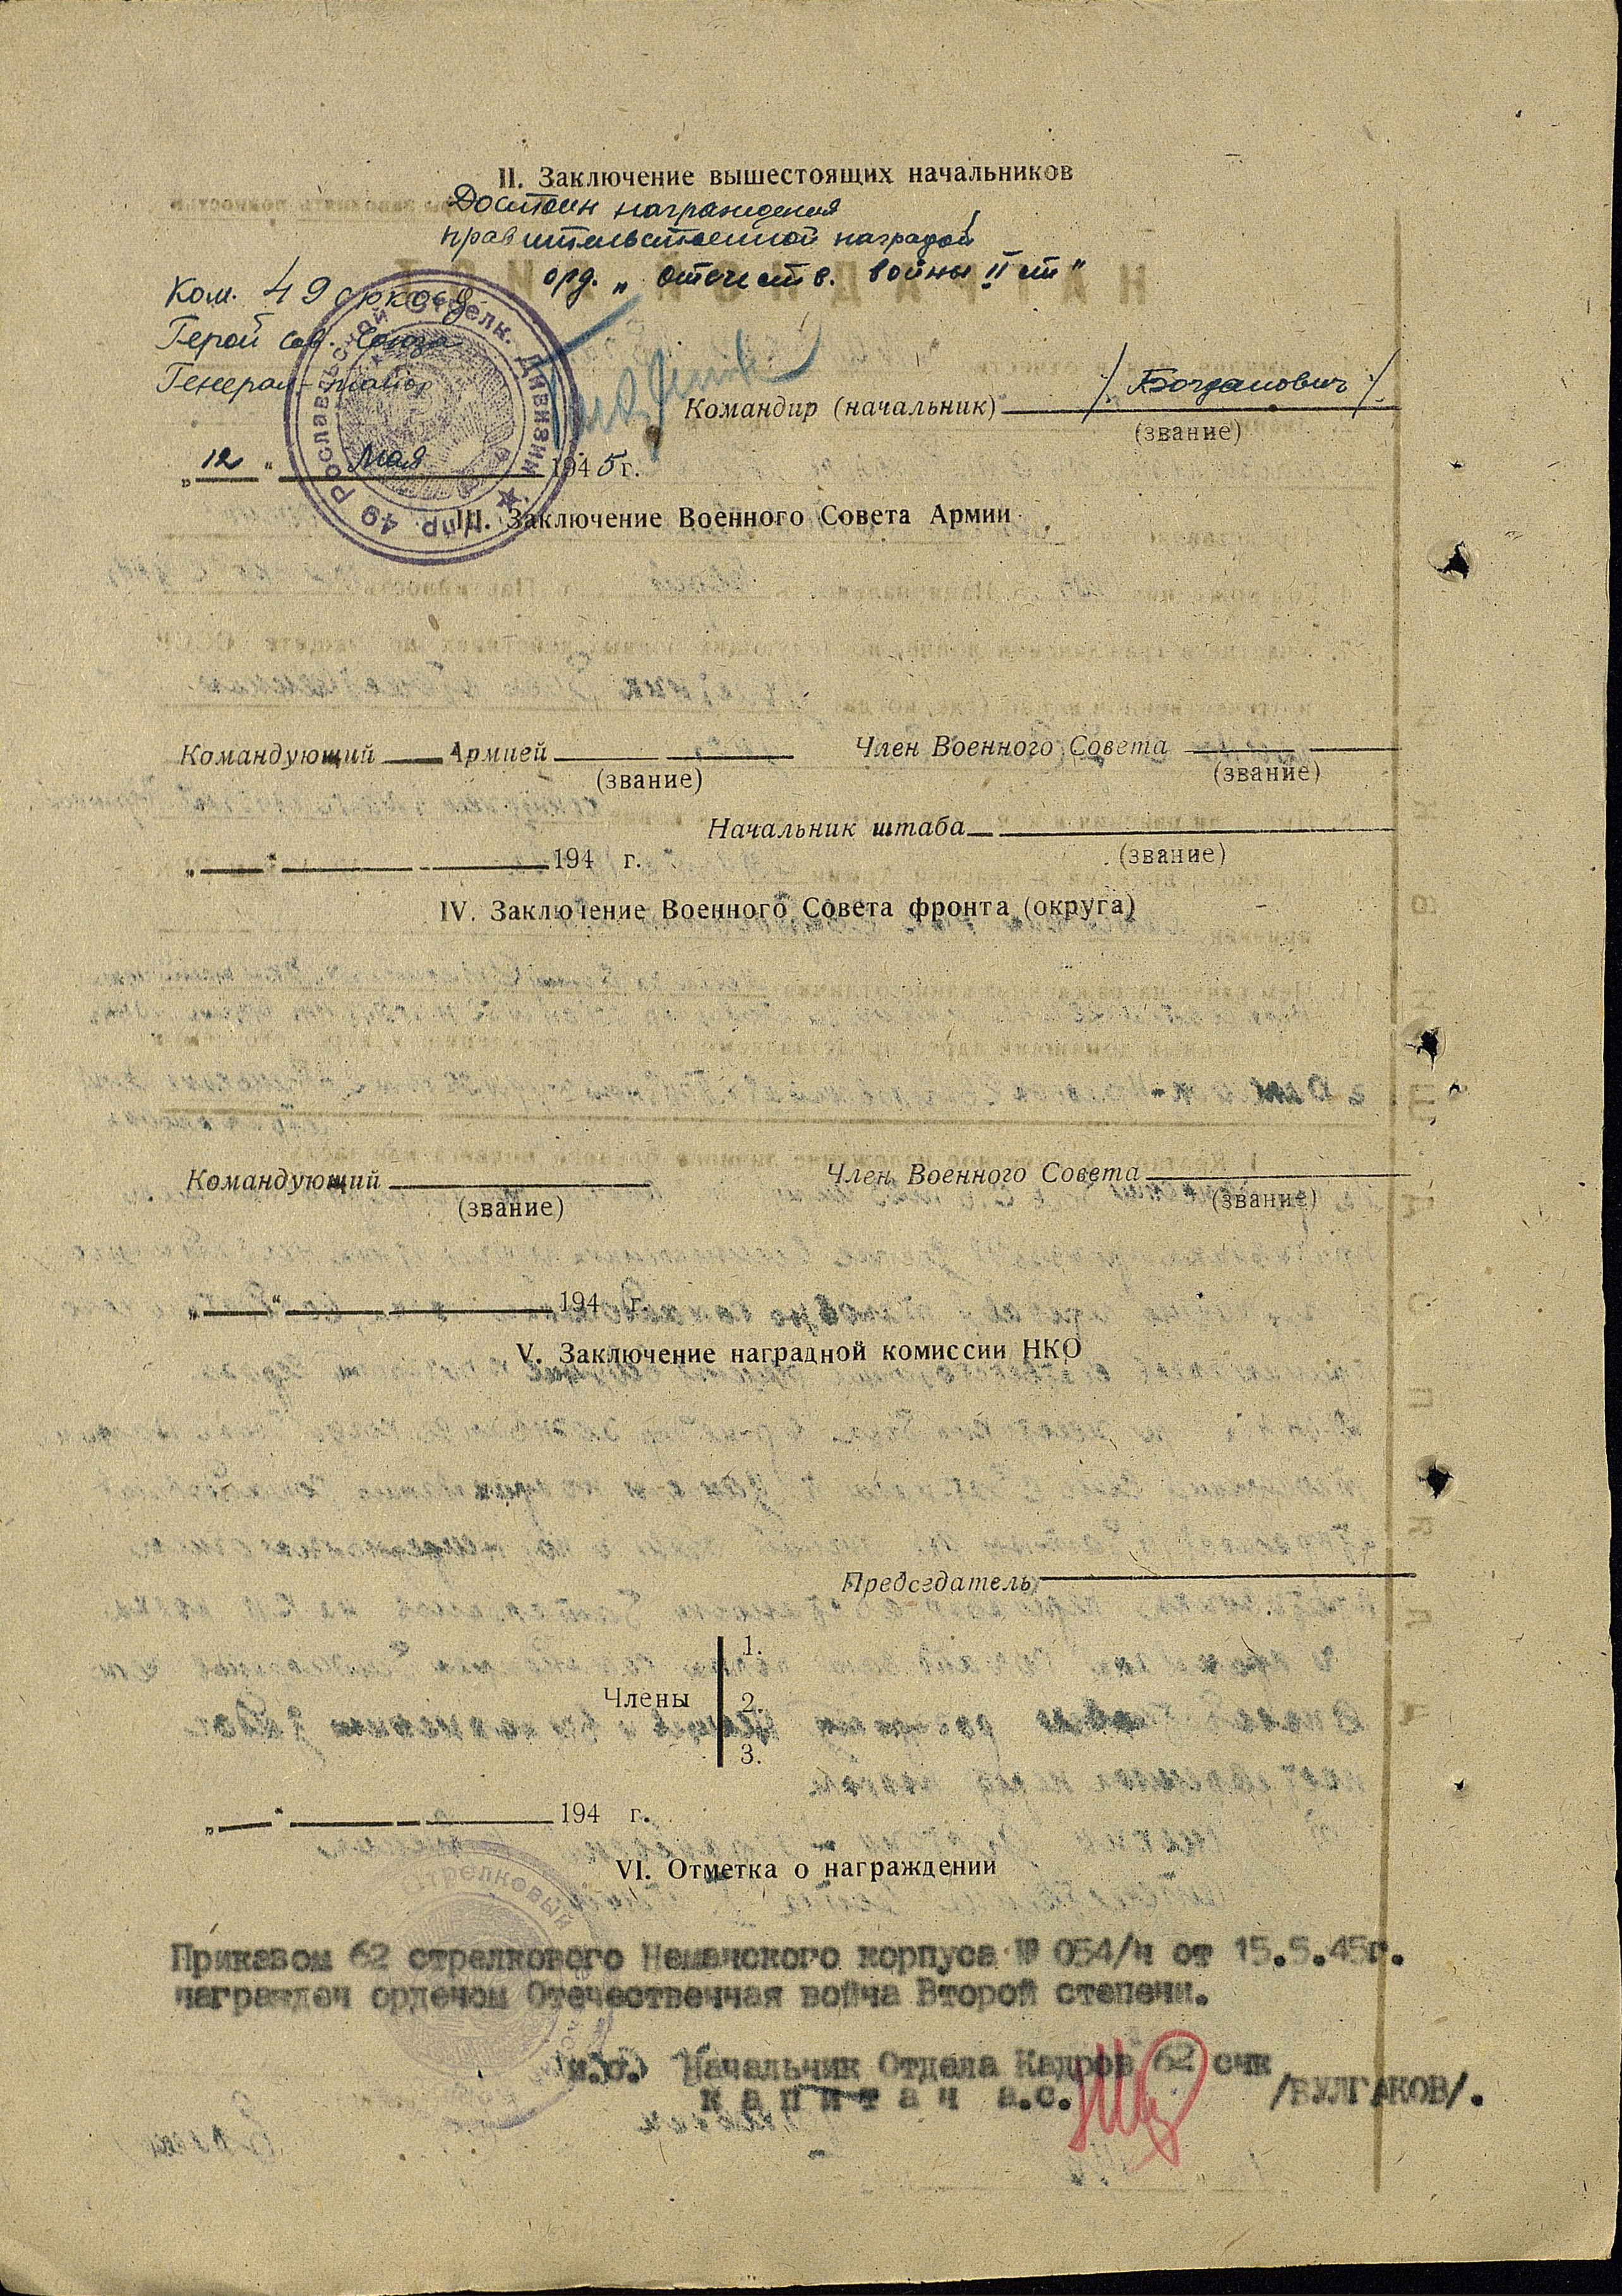 II. Заключение вышестоящих начальников
Достоин награждения
правительственной наградой
орд. „Отечеств. войны II ст"
Ком. 49 с.р.к.о.с.д.
Герой Сов. Союза
Генерал-майор
Командир (начальник) /Богданович/.
(звание)
„12" Мая 1945 г.
Упр. 49 Рославльской Стрелк. Дивизии
III. Заключение Военного Совета Армии
Командующий Армией
Член Военного Совета
(звание)
(звание)
Начальник штаба
„ " 194 г.
(звание)
IV. Заключение Военного Совета фронта (округа)
Командующий
Член Военного Совета
(звание)
(звание)
„ " 194 г.
V. Заключение наградной комиссии НКО
Председатель
1.
Члены 2.
3.
„ " 194 г.
VI. Отметка о награждении
Стрелковый
Приказом 62 стрелкового Неманского корпуса № 054/н от 15.5.45г.
награжден орденом Отечественная война Второй степени.
и.о. Начальник Отдела Кадров 62 снк
капитан а.с. /БУЛГАКОВ/.